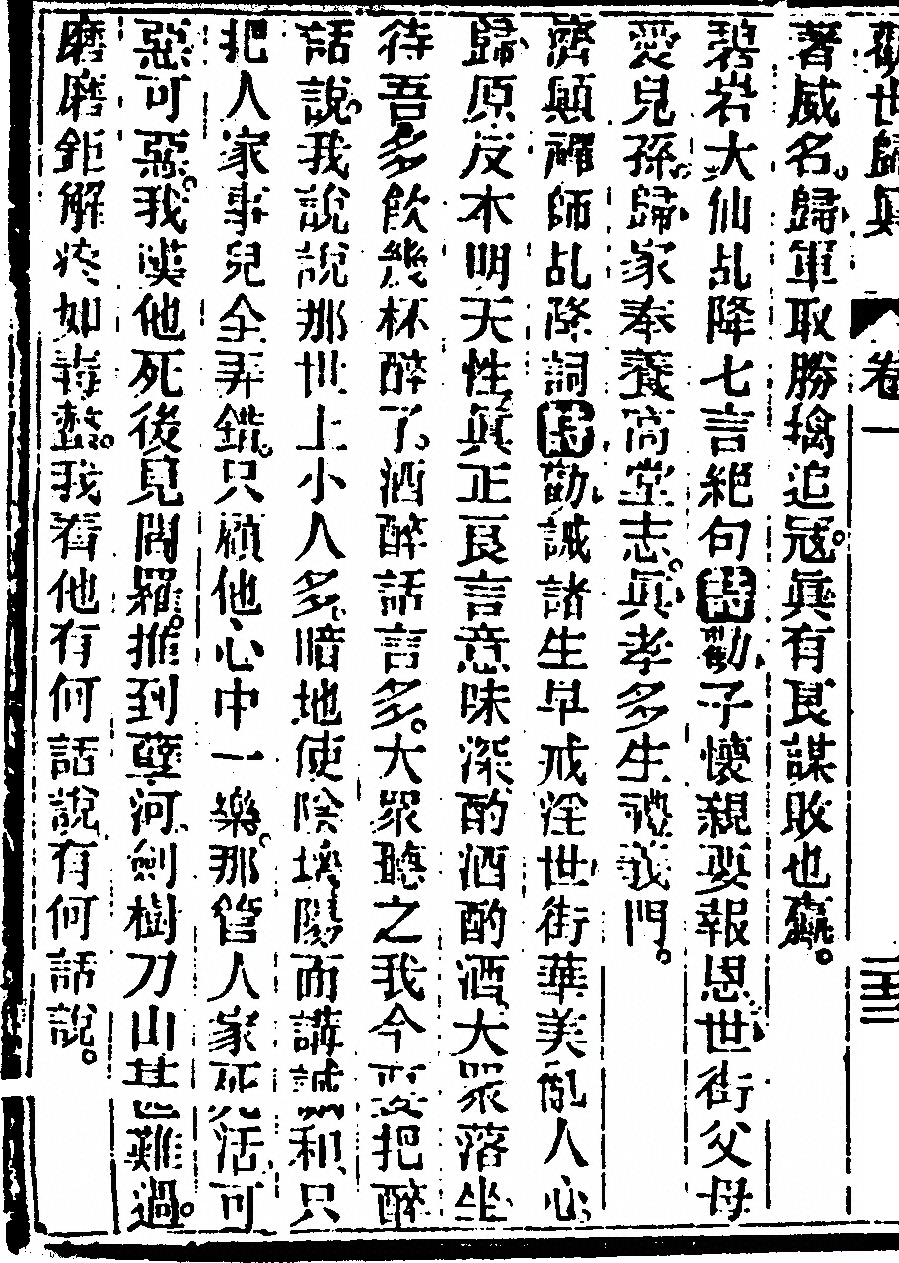 勸世歸眞 卷一
著威名。歸軍取勝擒追寇。眞有良謀敗也贏。
碧岩大仙乩降七言絕句詩勸子懷親要報恩世街父母
愛兒孫。歸家奉養高堂志。眞孝多生禮義門。
濟顛禪師乩降詞詩勸誡諸生早戒淫世街華美亂人心
歸原反本明天性眞正良言意味深酌酒酌酒大眾落坐
待吾多飲幾杯醉了。酒醉話言多。大眾聽之我今要把醉
話說。我說說那世上小人多。暗地使陰壞陽面講誠和只
把人家事兒全弄錯。只顧他心中一樂。那管人家死活可
惡可惡。我漢他死後見閻羅。推到孽河劍樹刀山其難過。
磨磨鉅解疼如毒螫。我看他有何話說有何話說。